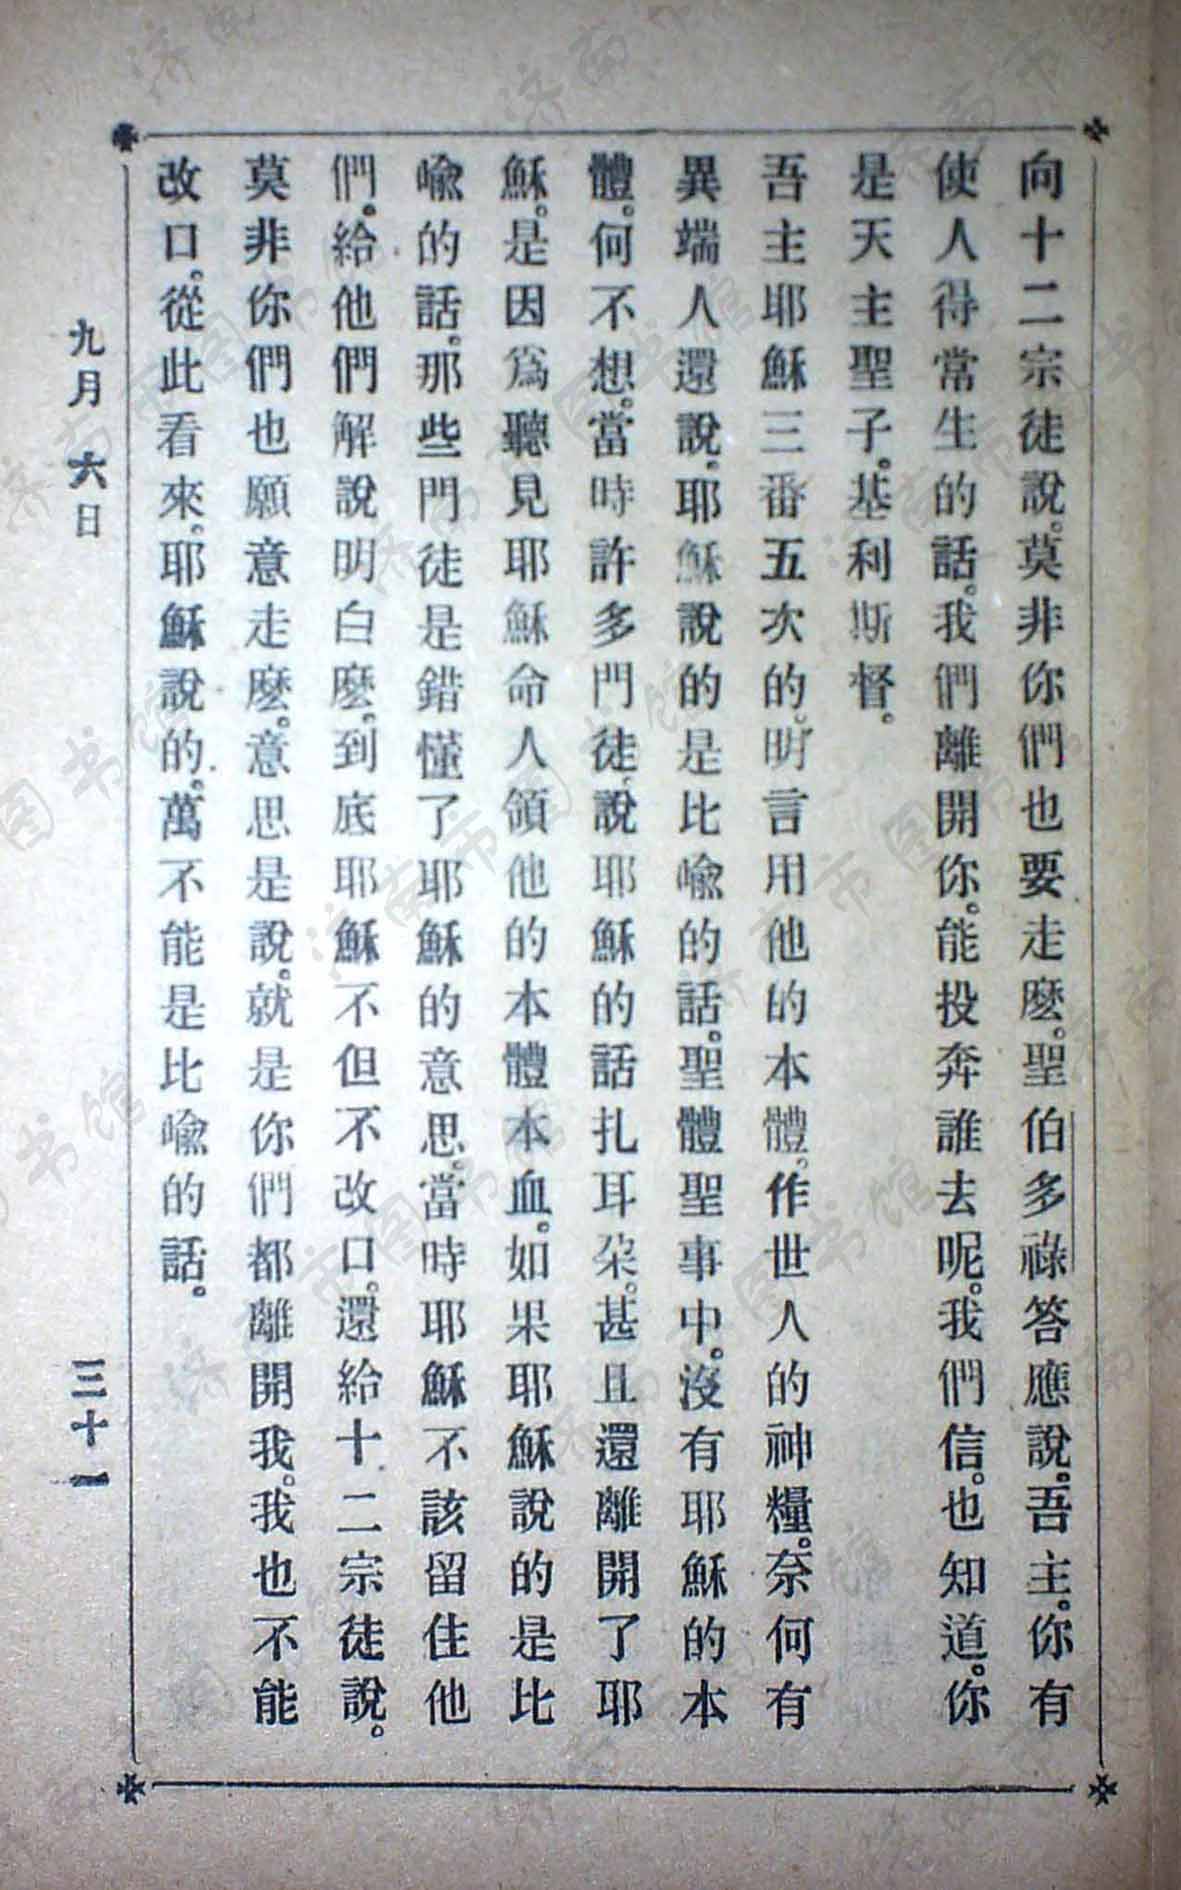 向十二宗徒說。莫非你們也要走麽。聖伯多祿答應說。吾主。你有
使人得常生的話。我們離開你。能投奔誰去呢。我們信。也知道。你
是天主聖子。基利斯督。
吾主耶穌三番五次的。明言用他的本體。作世人的神糧。奈何有
異端人還說。耶穌說的是比喻的話。聖體聖事中。沒有耶穌的本
體。何不想。當時許多門徒。說耶穌的話扎耳朶。甚且還離開了耶
穌。是因爲聽見耶穌命人領他的本體本血。如果耶穌說的是比
喻的話。那些門徒是錯懂了耶穌的意思。當時耶穌不該留住他
們。給他們解說明白麽。到底耶穌不但不改口。還給十二宗徒說。
莫非你們也願意走麽。意思是說。就是你們都離開我。我也不能
改口。從此看來。耶穌說的。萬不能是比喻的話。
九月六日
三十一
济南市图书馆